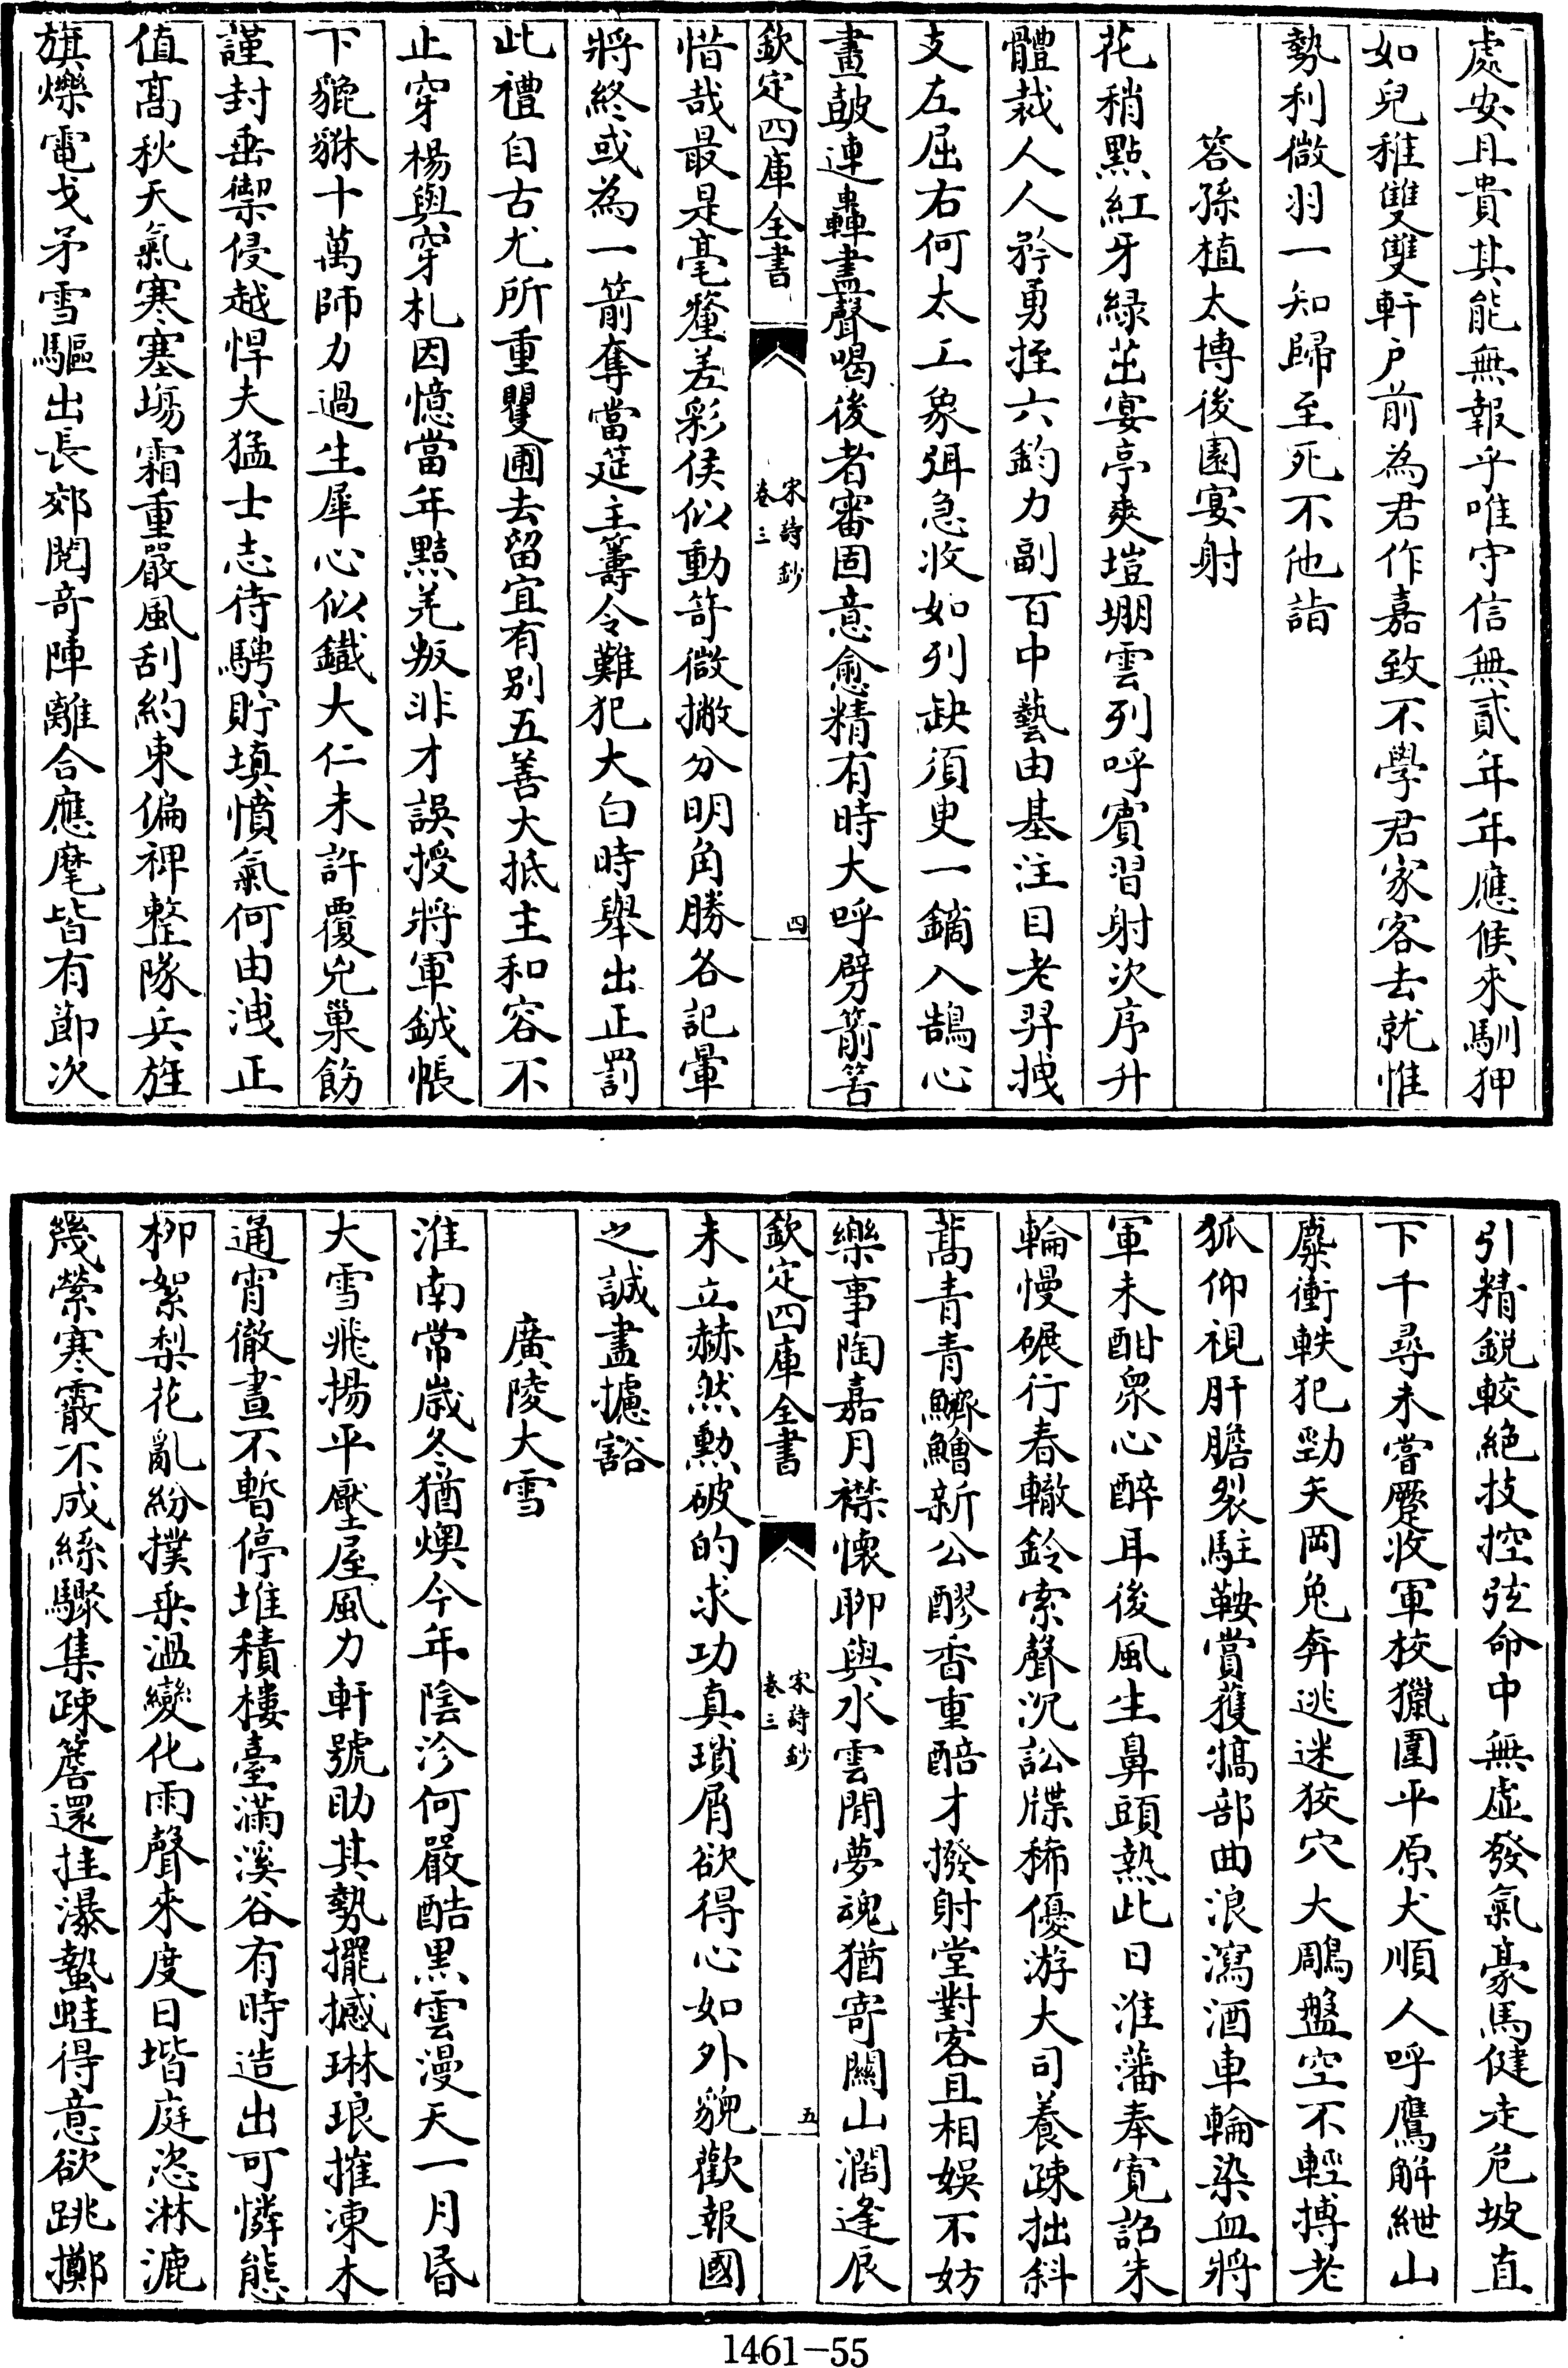 處安且貴其能無報乎唯守信無貳年年應候來馴狎
如兒稚雙雙軒戶前為君作嘉致不學君家客去就惟
勢利微羽一知歸至死不他詣
答孫植太博後園宴射
花稍點紅牙緑茁宴亭爽塏堋雲列呼賓習射次序升
體裁人人矜勇挃六鈞力副百中藝由基注目老羿拽
支左屈右何太工象弭急收如列缺須臾一鏑入鵠心
畫鼓連轟盡聲喝後者審固意愈精有時大呼劈箭筈
欽定四庫全書
宋詩鈔
卷三
四
惜哉最是毫釐差彩侯似動笴微撇分明角勝各記暈
將終或為一箭奪當筵主籌令難犯大白時舉出正罰
此禮自古尤所重矍圃去留宜有别五善大抵主和容不
止穿楊與穿札因憶當年黠羌叛非才誤授將軍鉞帳
下貔貅十萬師力過生犀心似鐵大仁未許覆兇巢飭
謹封垂禦侵越悍夫猛士志待騁貯填憤氣何由洩正
值高秋天氣寒塞場霜重嚴風刮約束偏裨整隊兵旌
旗爍電戈矛雪驅出長郊閱奇陣離合應麾皆有節次
引精鋭較絶技控弦命中無虚發氣豪馬健走危坡直
下千尋未嘗蹷收軍校獵圍平原犬順人呼鷹解紲山
麋衝軼犯勁矢岡兔奔逃迷狡穴大鵰盤空不輕搏老
狐仰視肝膽裂駐鞍賞獲犒部曲浪瀉酒車輪染血將
軍未酣衆心醉耳後風生鼻頭熱此日淮藩奉寛詔朱
輪慢碾行春轍鈴索聲沉訟牒稀優游大司養疎拙斜
蒿青青鱖鱠新公醪香重醅才撥射堂對客且相娱不妨
樂事陶嘉月襟懷聊與水雲閒夢魂猶寄關山濶逢辰
欽定四庫全書
宋詩鈔
卷三
五
未立赫然勲破的求功真瑣屑欲得心如外貌歡報國
之誠盡攄豁
廣陵大雪
淮南常歲冬猶燠今年陰沴何嚴酷黑雲漫天一月昏
大雪飛揚平壓屋風力軒號助其勢擺撼琳琅摧凍木
通宵徹晝不暫停堆積樓臺滿溪谷有時造出可憐態
柳絮梨花亂紛撲乘溫變化雨聲來度日堦庭恣淋漉
幾縈寒霰不成絲驟集疎簷還挂瀑蟄蛙得意欲跳擲
1461-55